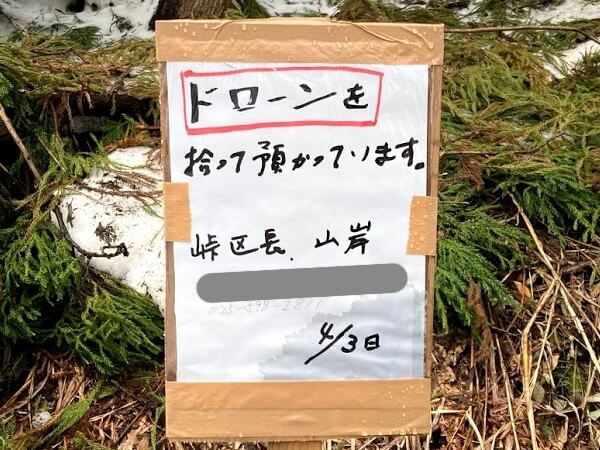 ドローンを
拾って預かっています。
峠区長、山岸
4/3日